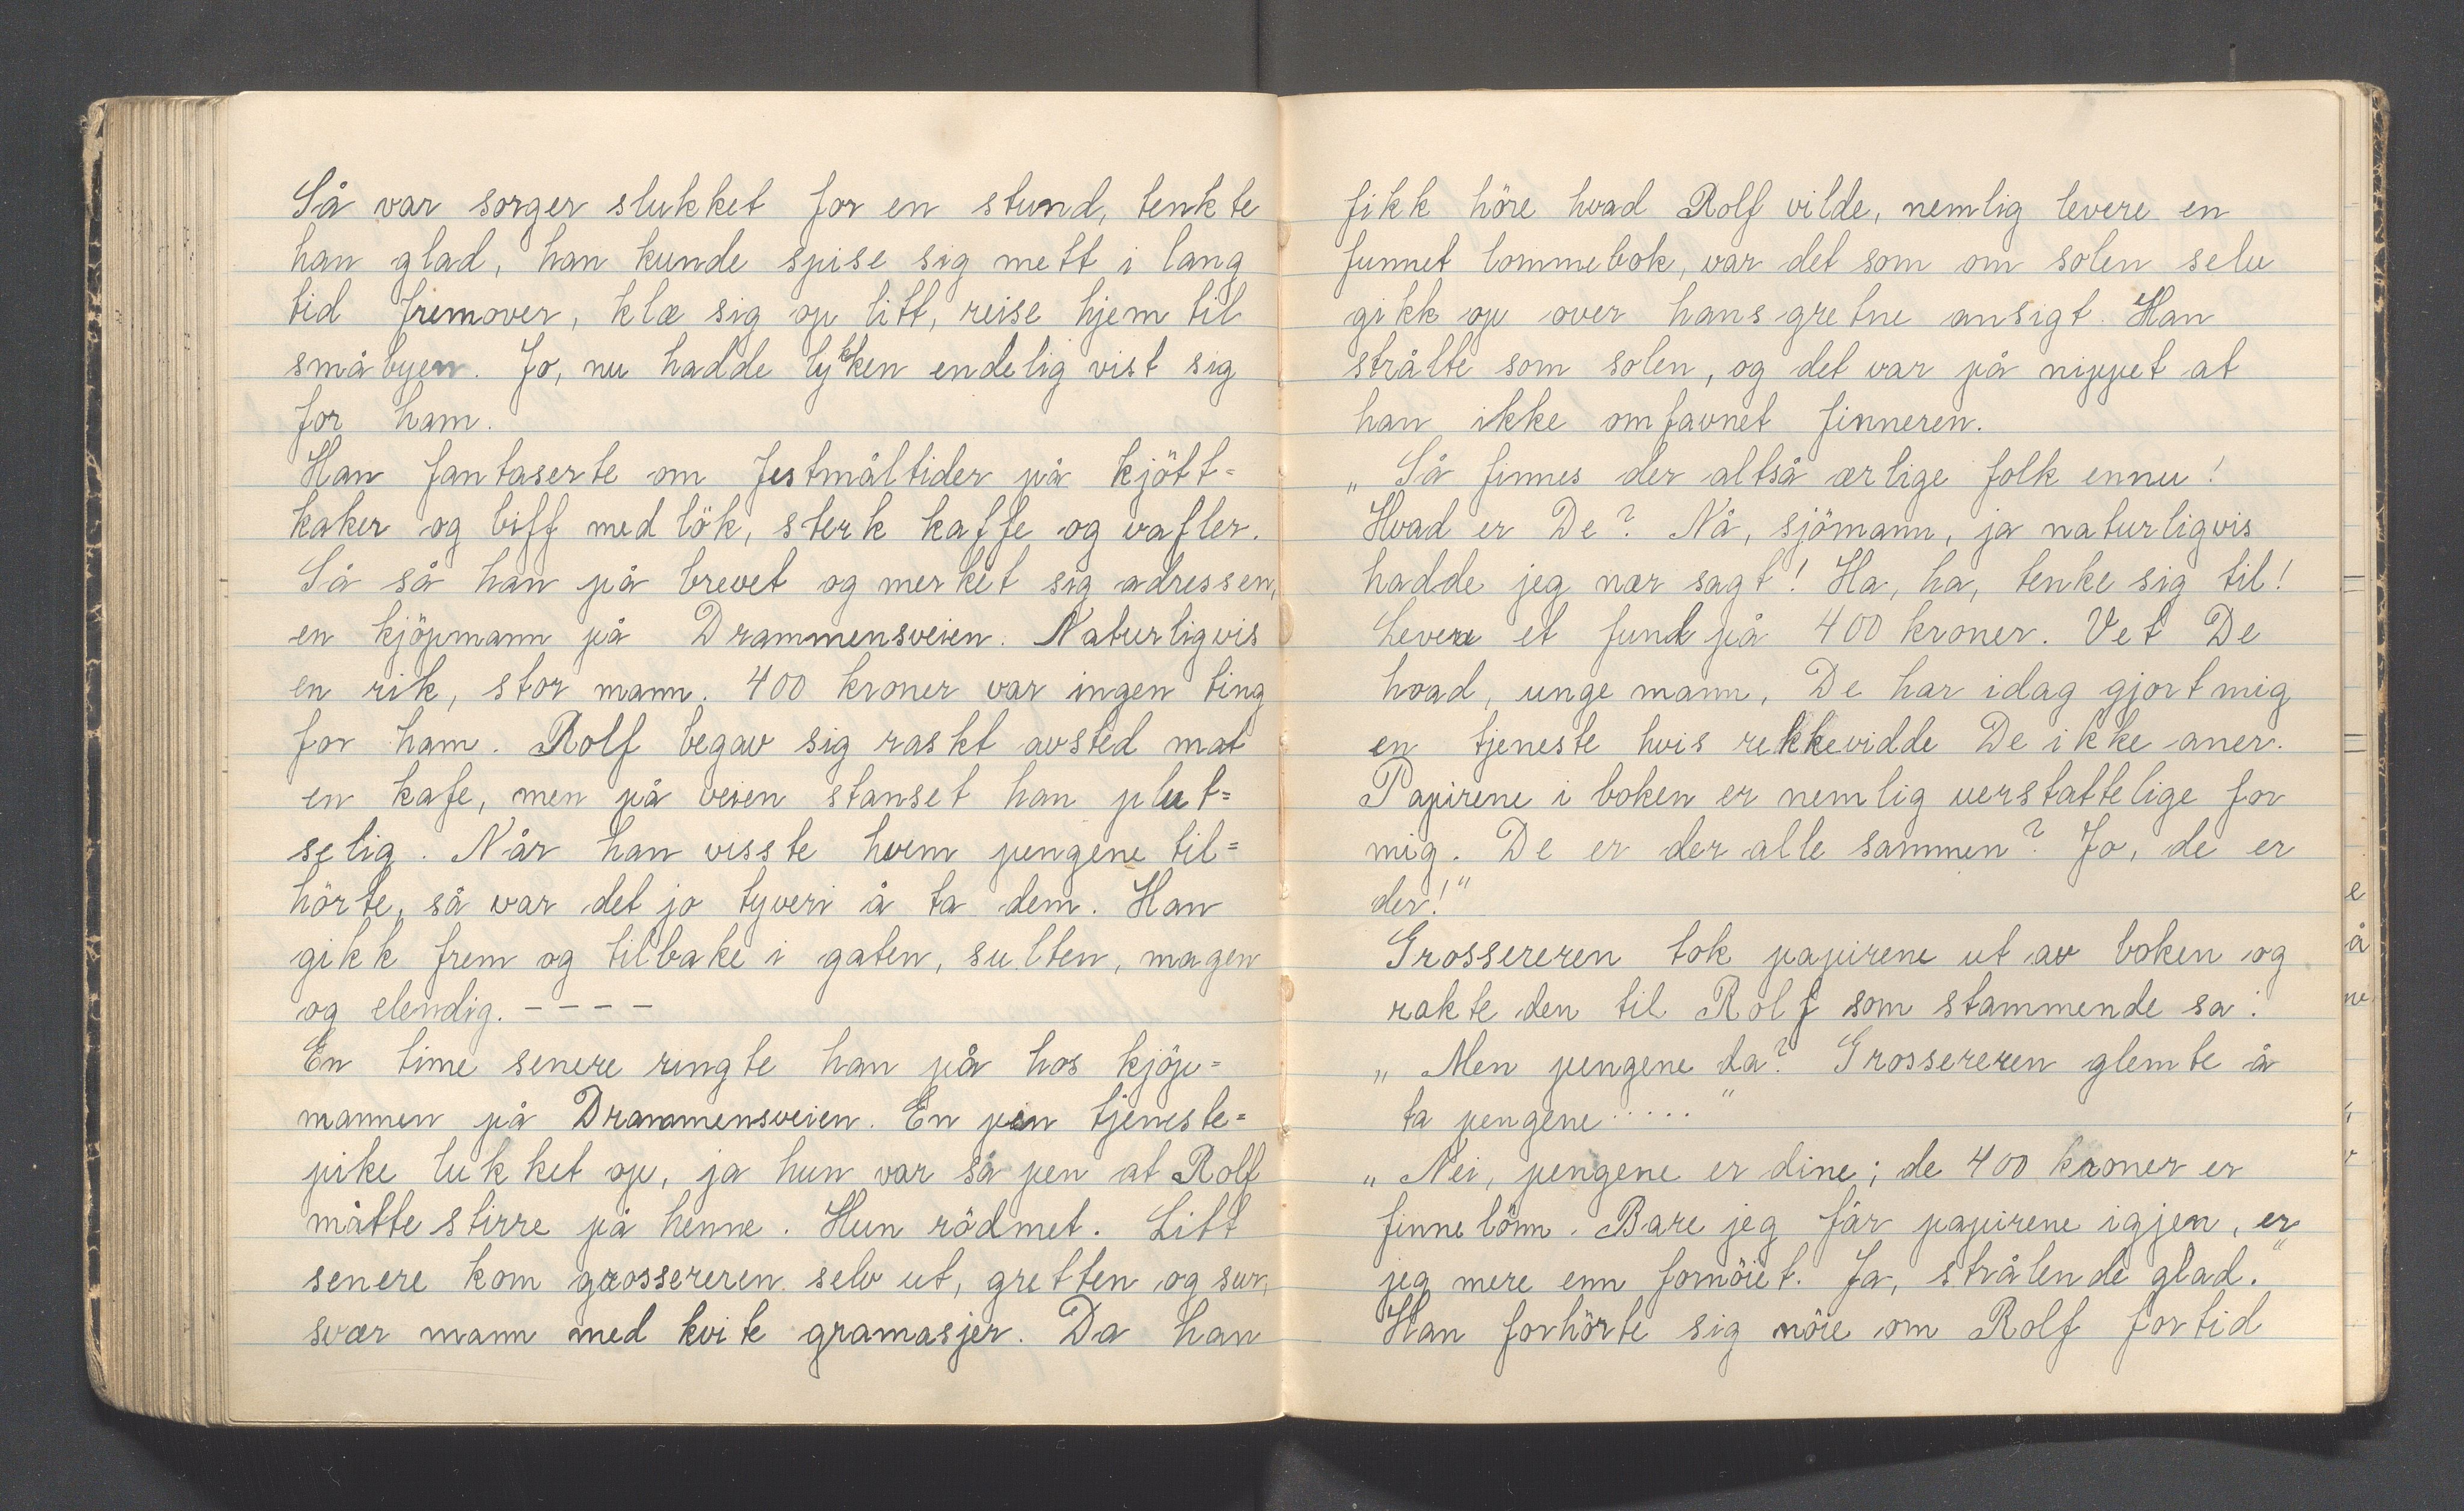 Så var sorger slukket for en stund, tenkte
han glad, han kunde spise sig mett i lang
tid fremover, klæ sig op litt, reise hjem til
småbyen. Jo, nu hadde lykken endelig vist sig
for ham.
Han fantaserte om festmåltider på kjött=
kaker og biff med lök, sterk kaffe og vafler.
Så så han på brevet og merket sig adressen,
en kjöpmann på Drammensveien. Naturligvis
en rik, stor mann. 400 kroner var ingen ting
for ham. Rolf begav sig raskt avsted mot
en kafe, men på veien stanset han plut=
selig. Når han visste hvem pengene til=
hörte, så var det jo tyveri å ta dem. Han
gikk frem og tilbake i gaten, sulten, magen
og elendig. – – – –
En time senere ringte han på hos kjöp=
mannen på Drammensveien. En pen tjeneste=
pike lukket op, ja hun var så pen at Rolf
måtte stirre på henne. Hun rödmet. Litt
senere kom grossereren selv ut, gretten og sur,
svær mann med kvite gramasjer. Da han
fikk höre hvad Rolf vilde, nemlig levere en
funnet lommebok, var det som om solen selv
gikk op over hans gretne ansigt. Han
strålte som solen, og det var på nippet at
han ikke omfavnet finneren.
„Så finnes der altså ærlige folk ennu!
Hvad er De? Nå, sjömann, ja naturligvis
hadde jeg nær sagt! Ha, ha, tenke sig til!
Levere et fund på 400 kroner. Vet De
hvad, unge mann, De har idag gjort mig
en tjeneste hvis rekkevidde De ikke aner.
Papirene i boken er nemlig uerstattelige for
mig. De er der alle sammen? Jo, de er
der!"
Grossereren tok papirene ut av boken og
rakte den til Rolf som stammende sa:
„Men pengene da? Grossereren glemte å
ta pengene....."
„Nei, pengene er dine; de 400 kroner er
finnelönn. Bare jeg får papirene igjen, er
jeg mere enn fornöiet. Ja, strålende glad."
Han forhörte sig nöie om Rolf fortid
e
å